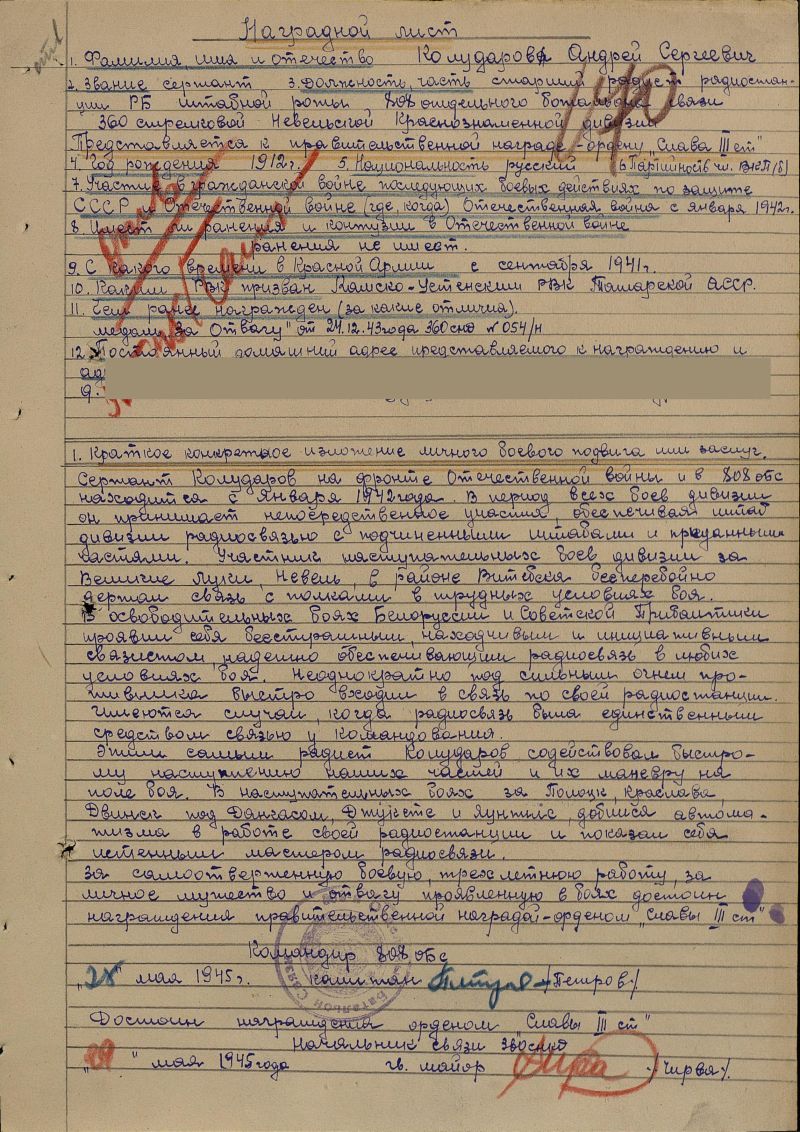 Наградной лист
1. Фамилия, имя и отчество Колударов Андрей Сергеевич
2. Звание сержант 3. Должность, часть старший радист радиостан-
ции РБ штабной роты 808 отдельного батальона связи
360 стрелковой Невельской Краснознаменной дивизии
Представляется к правительственной награде - ордену "Слава III ст"
4. Год рождения 1912 г. 5. Национальность русский 6 Партийность чл. ВКП/б/
7. Участие в гражданской войне последующих боевых действиях по защите
СССР и Отечественной войне (где, когда) Отечественная война с января 1942г.
8. Имеет ли ранения и контузии в Отечественной войне
ранения не имеет.
9. С какого времени в Красной Армии с сентября 1941г.
10. Каким РВК призван Камско-Устенским РВК Татарской АССР.
11. Чем ранее награжден (за какие отличия).
медаль "за Отвагу" от 24.12.43 года 360 сд № 054/н
12. Постоянный домашний адрес представляемого к награждению и
ад
190
1. Краткое конкретное изложение личного боевого подвига или заслуг.
Сержант Колударов на фронте Отечественной войны и в 808 обс
находится с Января 1942 года. В период всех боев дивизии
он принимает непосредственное участия, обеспечивая штаб
дивизии радиосвязью с подчиненными штабами и приданными
частями. Участник наступательных боев дивизии за
Великие Луки, Невель, в районе Витебска бесперебойно
держал связь с полками в трудных условиях боя.
В освободительных боях Белоруссии и Советской Прибалтики
проявил себя бесстрашным, находчивым и инициативным
связистом, надежно обеспечивающим радиосвязь в любых
условиях боя. Неоднократно под сильным огнем про-
тивника быстро входил в связь по своей радиостанции.
Имеются случаи, когда радиосвязь была единственным
средством связью у командования.
Этим самым радист Колударов содействовал быстро-
му наступлению наших частей и их маневру на
поле боя. В наступательных боях за Полоцк, Краслава,
Двинск под Дангасом, Джуксте и Яунпилс, добился автома-
тизма в работе своей радиостанции и показал себя
истенным мастером радиосвязи.
За самоотверженную боевую, трех летнюю работу, за
личное мужество и отвагу проявленную в боях достоин
награждения правительственной наградой - орденом "Славы III ст"
Командир 808 обс
"28" мая 1945г. капитан /Петров/
Батальон Связи
Достоин награждения орденом "Славы III ст"
Начальник связи 360 снкд
"29" мая 1945 года гв. майор /Чирва/.